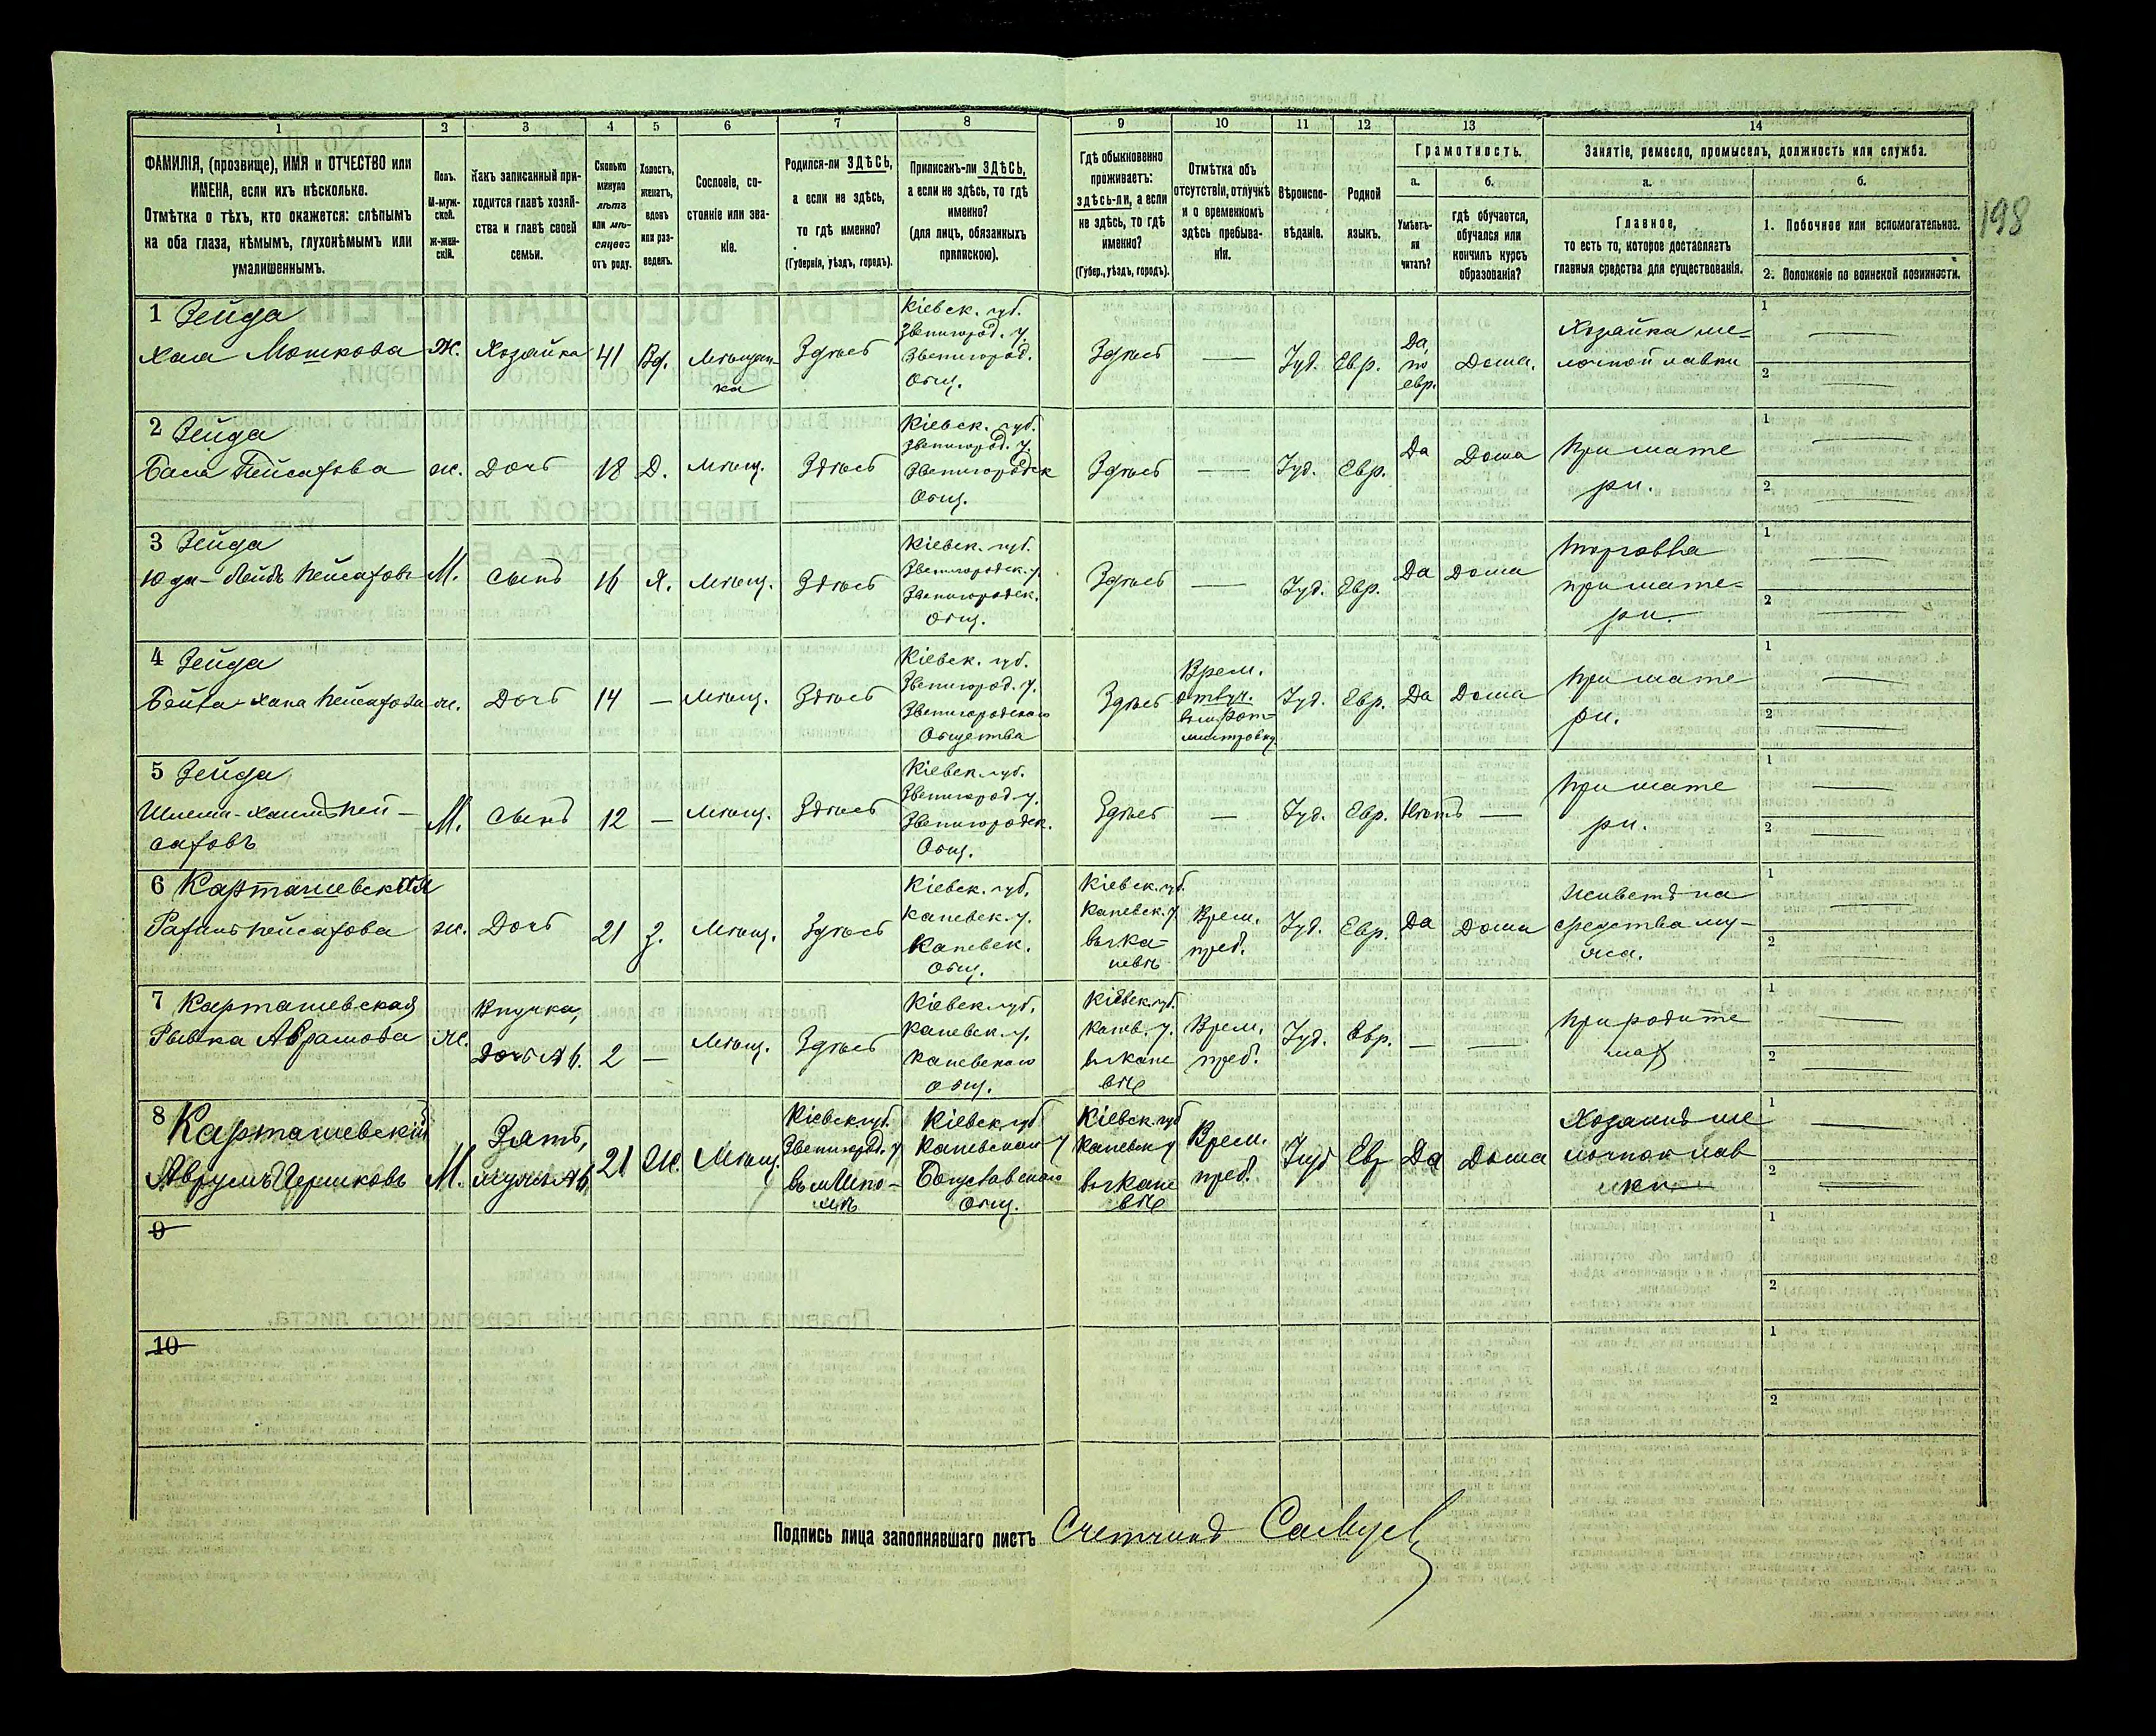 198
1 2 3 4 5 6 7 8 9 10 11 12 13 14
ФАМИЛІЯ, (прозвище), ИМЯ и ОТЧЕСТВО или
ИМЕНА, если ихъ нѣсколько.
Отмѣтка о тѣхъ, кто окажется: слѣпымъ
на оба глаза, нѣмымъ, глухонѣмымъ или
умалишеннымъ.
Полъ.
М-муж-
ской.
Ж-жен-
скій.
Какъ записанный при-
ходится главѣ хозяй-
ства и главѣ своей
семьи.
Сколько
минуло
лѣтъ
или мѣ-
сяцевъ
отъ роду.
Холостъ,
женатъ,
вдовъ
или раз-
веденъ.
Сословіе, со-
стояніе или зва-
ніе.
Родился-ли ЗДѢСЬ,
а если не здѣсь,
то гдѣ именно?
(Губернія, уѣздъ, городъ).
Приписанъ-ли ЗДѢСЬ,
а если не здѣсь, то гдѣ
именно?
(для лицъ, обязанныхъ
припискою).
Гдѣ обыкновенно
проживаетъ:
здѣсь-ли, а если
не здѣсь, то гдѣ
именно?
(Губер., уѣздъ, городъ).
Отмѣтка объ
отсутствіи, отлучкѣ
и о временномъ
здѣсь пребыва-
ніи.
Вѣроиспо-
вѣданіе.
Родной
языкъ.
Грамотность.
а.
Умѣетъ-
ли
читать?
б.
гдѣ обучается,
обучался или
кончилъ курсъ
образованія?
Занятіе, ремесло, промыселъ, должность или служба.
а.
Главное,
то есть то, которое доставляетъ
главныя средства для существованія.
б.
1. Побочное или вспомогательное.
2. Положеніе по воинской повинности.
1 Зейда
Хая Мошкова
Ж.
Хозяйка
41
Вд.
Мѣщан-
ка
Здѣсь
Кіевск. губ.
Звенигород. у.
Звенигород.
Общ.
Здѣсь
—
Іуд.
Евр.
Да,
по
евр.
Дома.
Хозяйка ме-
лочной лавки
1 —
2 —
2 Зейда
Бася Пейсахова
ж.
Дочь
18
Д.
Мѣщ.
Здѣсь
Кіевск. губ.
Звенигород. у.
Звенигородск
Общ.
Здѣсь
—
Іуд.
Евр.
Да
Дома
При мате
ри.
1 —
2 —
3 Зейда
Юда-Лейбъ Пейсаховъ
М.
Сынъ
16
Х.
Мѣщ.
Здѣсь
Кіевск. губ.
Звенигородск. у.
Звенигородск.
Общ.
Здѣсь
—
Іуд.
Евр.
Да
Дома
Торговля
при мате-
ри.
1 —
2 —
4 Зейда
Бейла-Хана Пейсахова
ж.
Дочь
14
—
Мѣщ.
Здѣсь
Кіевск. губ.
Звенигород. у.
Звенигородскаго
Общества
Здѣсь
Врем.
отлуч.
Іуд.
Евр.
Да
Дома
При мате
ри.
1 —
2 —
5 Зейда
Шлема-Хаимъ Пей-
саховъ
М.
Сынъ
12
—
Мѣщ.
Здѣсь
Кіевск. губ.
Звенигород. у.
Звенигородск.
Общ.
Здѣсь
—
Іуд.
Евр.
Нѣтъ
—
При мате
ри.
1 —
2 —
6 Карташевская
Рахиль Пейсахова
ж.
Дочь
21
З.
Мѣщ.
Здѣсь
Кіевск. губ.
Каневск. у.
Каневск.
Общ.
Кіевск. губ.
Каневск. у.
въ г. Ка-
невѣ
Врем.
преб.
Іуд.
Евр.
Да
Дома
Живетъ на
средства му-
жа.
1 —
2 —
7 Карташевская
Рывка Аврамова
ж.
Внучка,
Дочь № 6.
2
—
Мѣщ.
Здѣсь
Кіевск. губ.
Каневск. у.
Каневскаго
общ.
Кіевск. губ.
Канев. у.
въ г. Кане
вѣ
Врем.
преб.
Іуд.
Евр.
—
—
При родите
ляхъ
1 —
2 —
8 Карташевскій
Аврумъ Гершковъ
М.
Зять,
мужъ № 6
21
Ж.
Мѣщ.
Кіевск. губ.
Звенигород. у
въ м. Шпо-
лѣ
Кіевск. губ
Каневскаго у
Богуславскаго
Общ.
Кіевск. губ
Каневск у
въ г. Кане
вѣ
Врем.
преб.
Іуд
Евр
Да
Дома
Хозяинъ ме
лочной лав
ки
1 —
2 —
9
1
2
10
1
2
Подпись лица заполнявшаго листъ Счетчикъ